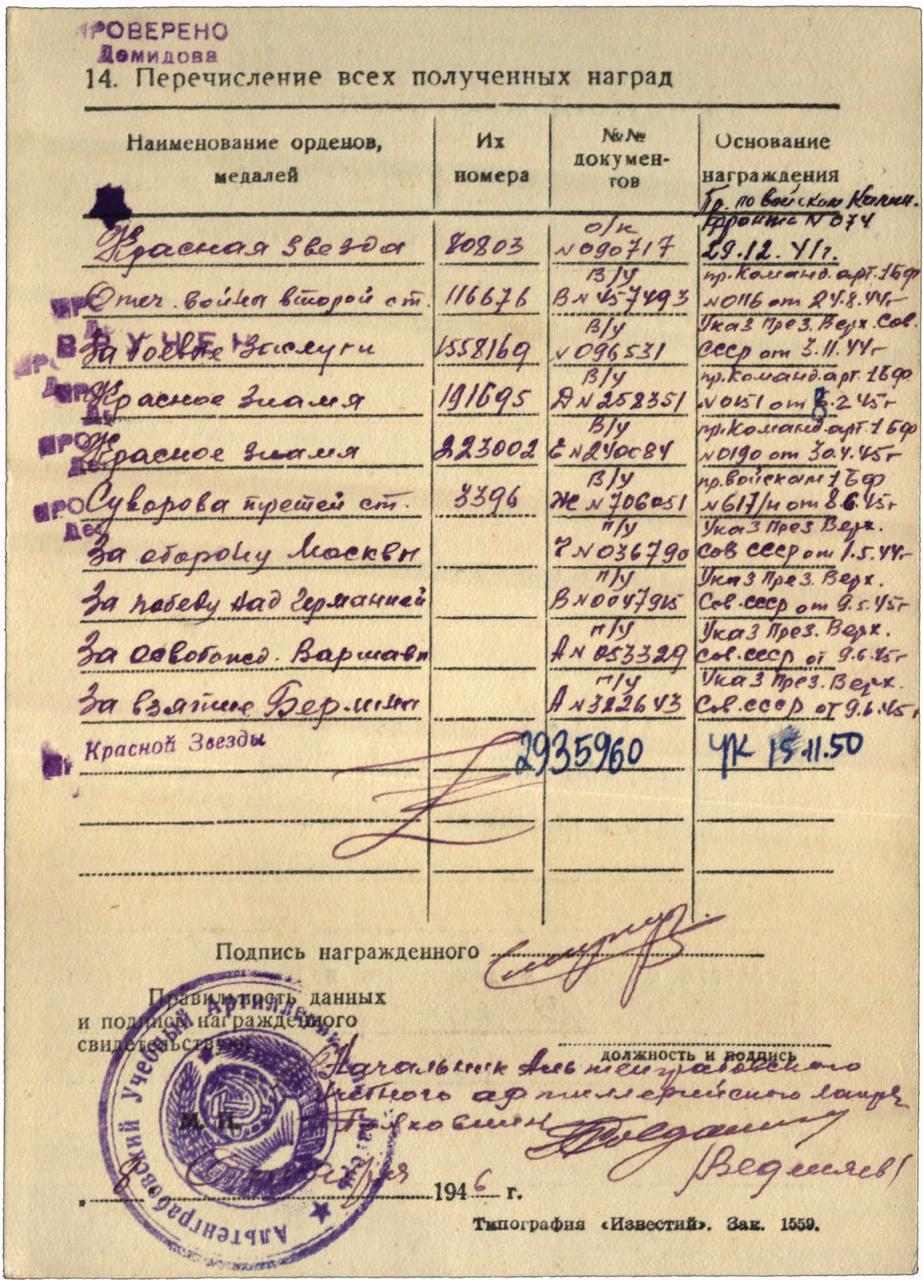 ПРОВЕРЕНО
Демидова
14. Перечисление всех полученных наград
Наименование орденов, медалей
Их номера
№№ документов
Основание награждения
Пр. по войскам Калин. фронта N 074
Красная Звезда 20803 о/к N 090717 29.12.41г.
Отеч. война второй ст. 116676 В/у В N 457493 пр. Команд. арт. 1 БФ N 0116 от 24.8.44г
ВРУЧЕН
За боевые заслуги 1558169 В/у N 096531 Указ През. Верх. Сов. СССР от 3.11.44г
Красное Знамя 191695 В/у Д N 258351 пр. Команд. арт. 1 БФ N 0151 от 8.2.45г
Красное Знамя 223002 В/у Е N 240084 пр. Команд. арт 1 БФ N 0190 от 30.4.45г
Суворова третей ст. 3396 В/у Ж N 706051 пр. войскам 1 БФ N 617/н от 8.6.45г
За оборону Москвы п/у Ч N 036790 Указ През. Верх. Сов СССР от 1.5.44г
За победу над Германией п/у В N 0047915 Указ През. Верх. Сов. СССР от 9.5.45г
За освобожд. Варшавы п/у А N 053329 Указ През. Верх. Сов. СССР от 9.6.45г
За взятие Берлина п/у А N 322643 Указ През. Верх. Сов. СССР от 9.6.45г
Красной Звезды 2935960 УК 15.11.50
Подпись награжденного
Правильность данных
и подписи награжденного
свидетельствую
должность и подпись
Начальник Альтенграбовского
Учебного артиллерийского лагеря
Полковник
(Ведмяев)
М. П.
Альтенграбовский Учебный Артиллерийский Лагерь
8 1946 г.
Типография «Известий». Зак. 1559.